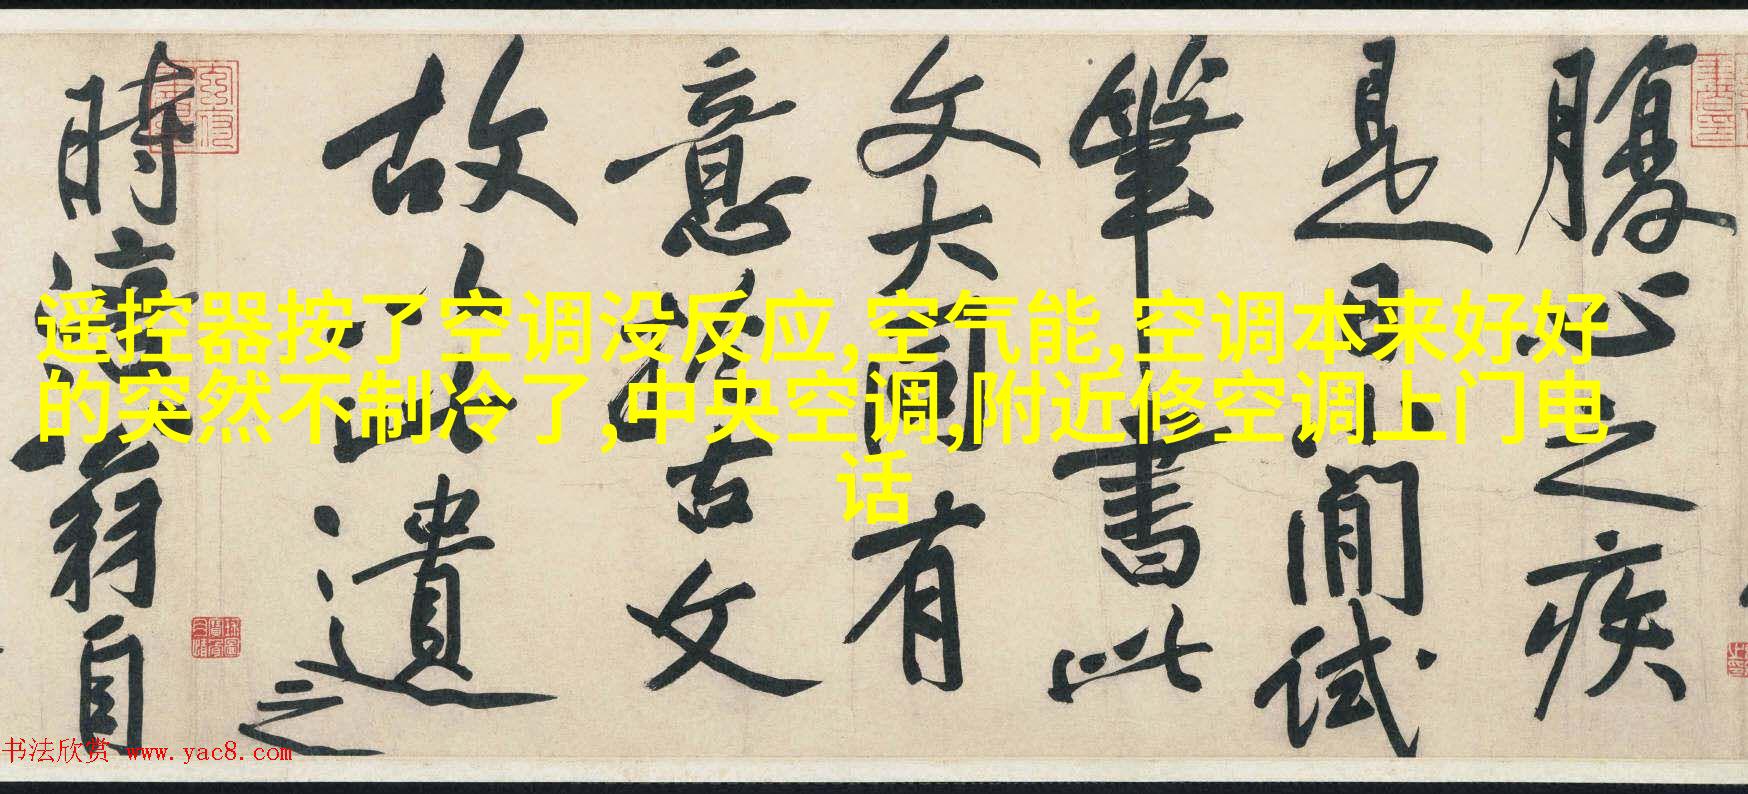 腹心之疾
是日小閒試
筆書此
文大同有
意於古文
故以此遺之
時涪翁自
遥控器按了空调没反应,空气能,空调本来好好
的突然不制冷了,中央空调,附近修空调上门电
话
书法欣赏 www.yac8.com